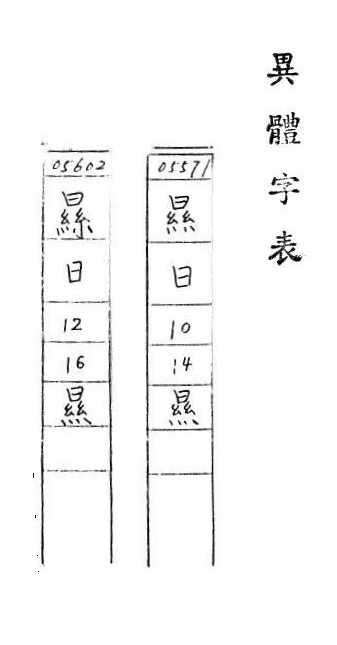 異體字表
05571
㬎
日
10
14
㬎
05602
日
12
16
㬎